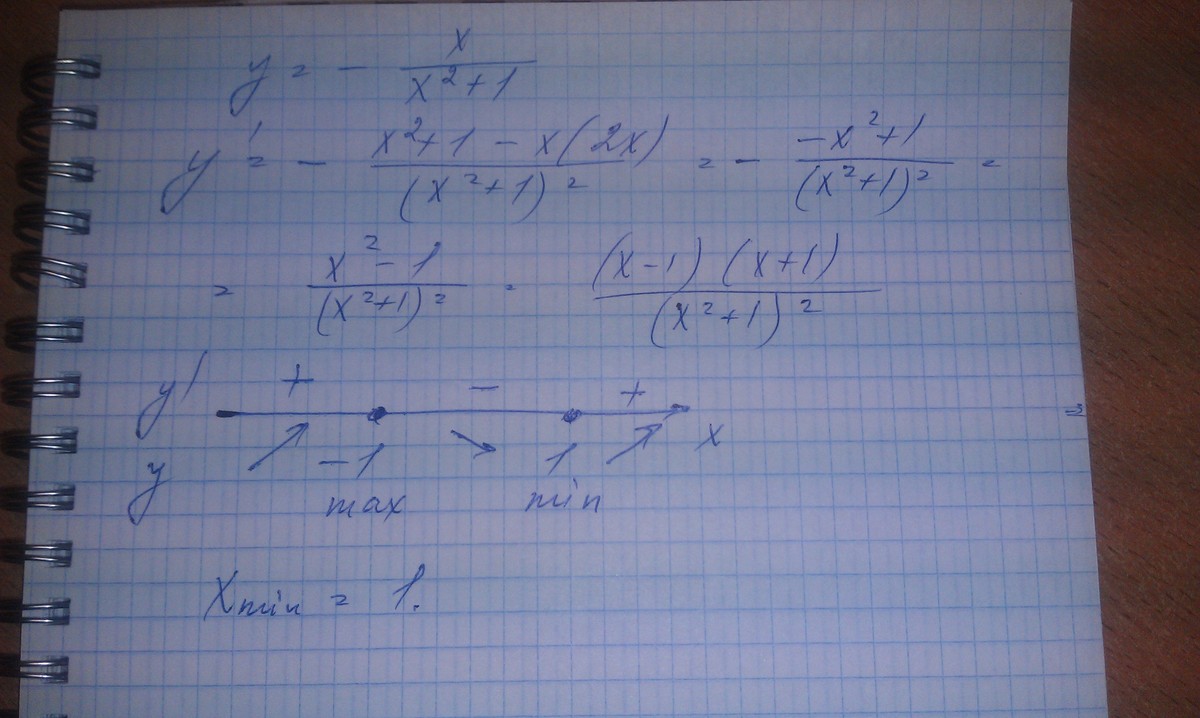 y = - x / (x² + 1)
y' = - (x² + 1 - x(2x)) / (x² + 1)² = - (-x² + 1) / (x² + 1)² =
= (x² - 1) / (x² + 1)² = (x - 1) (x + 1) / (x² + 1)²
y' + - +
y ↗ -1 ↘ 1 ↗ x
max min
Xmin = 1.